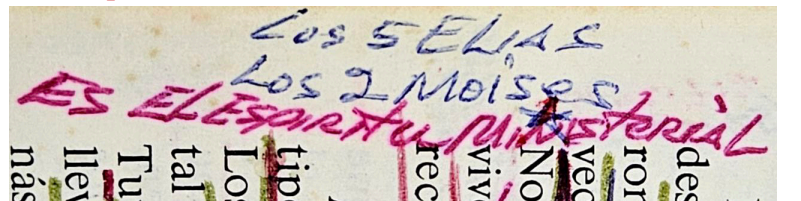 Los 5 ELIAS
Los 2 Moises
ES EL ESPIRITU MINISTERIAL
des
ron
vec
No
vivo
rec
tipo
Los
tal
Tu
llev
nás